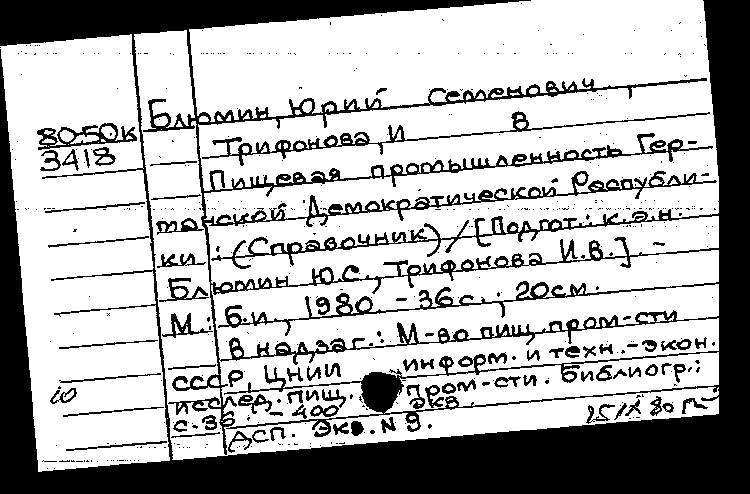 Блюмин, Юрий Семенович,
80-50к
3418
Трифонова, И В
Пищевая промышленность Гер-
манской Демократической Республи-
ки : (Справочник) / [Подгот.: к.э.н.
Блюмин Ю.С., Трифонова И.В.] . -
М.: Б.и., 1980. - 36 с. ; 20 см.
В надзаг.: М-во пищ. пром-сти
СССР, ЦНИИ информ. и техн.-экон.
10
исслед. пищ. пром-сти. Библиогр.:
с. 36. - 400 экз.
ДСП. Экз. N 9.
15/IX 80